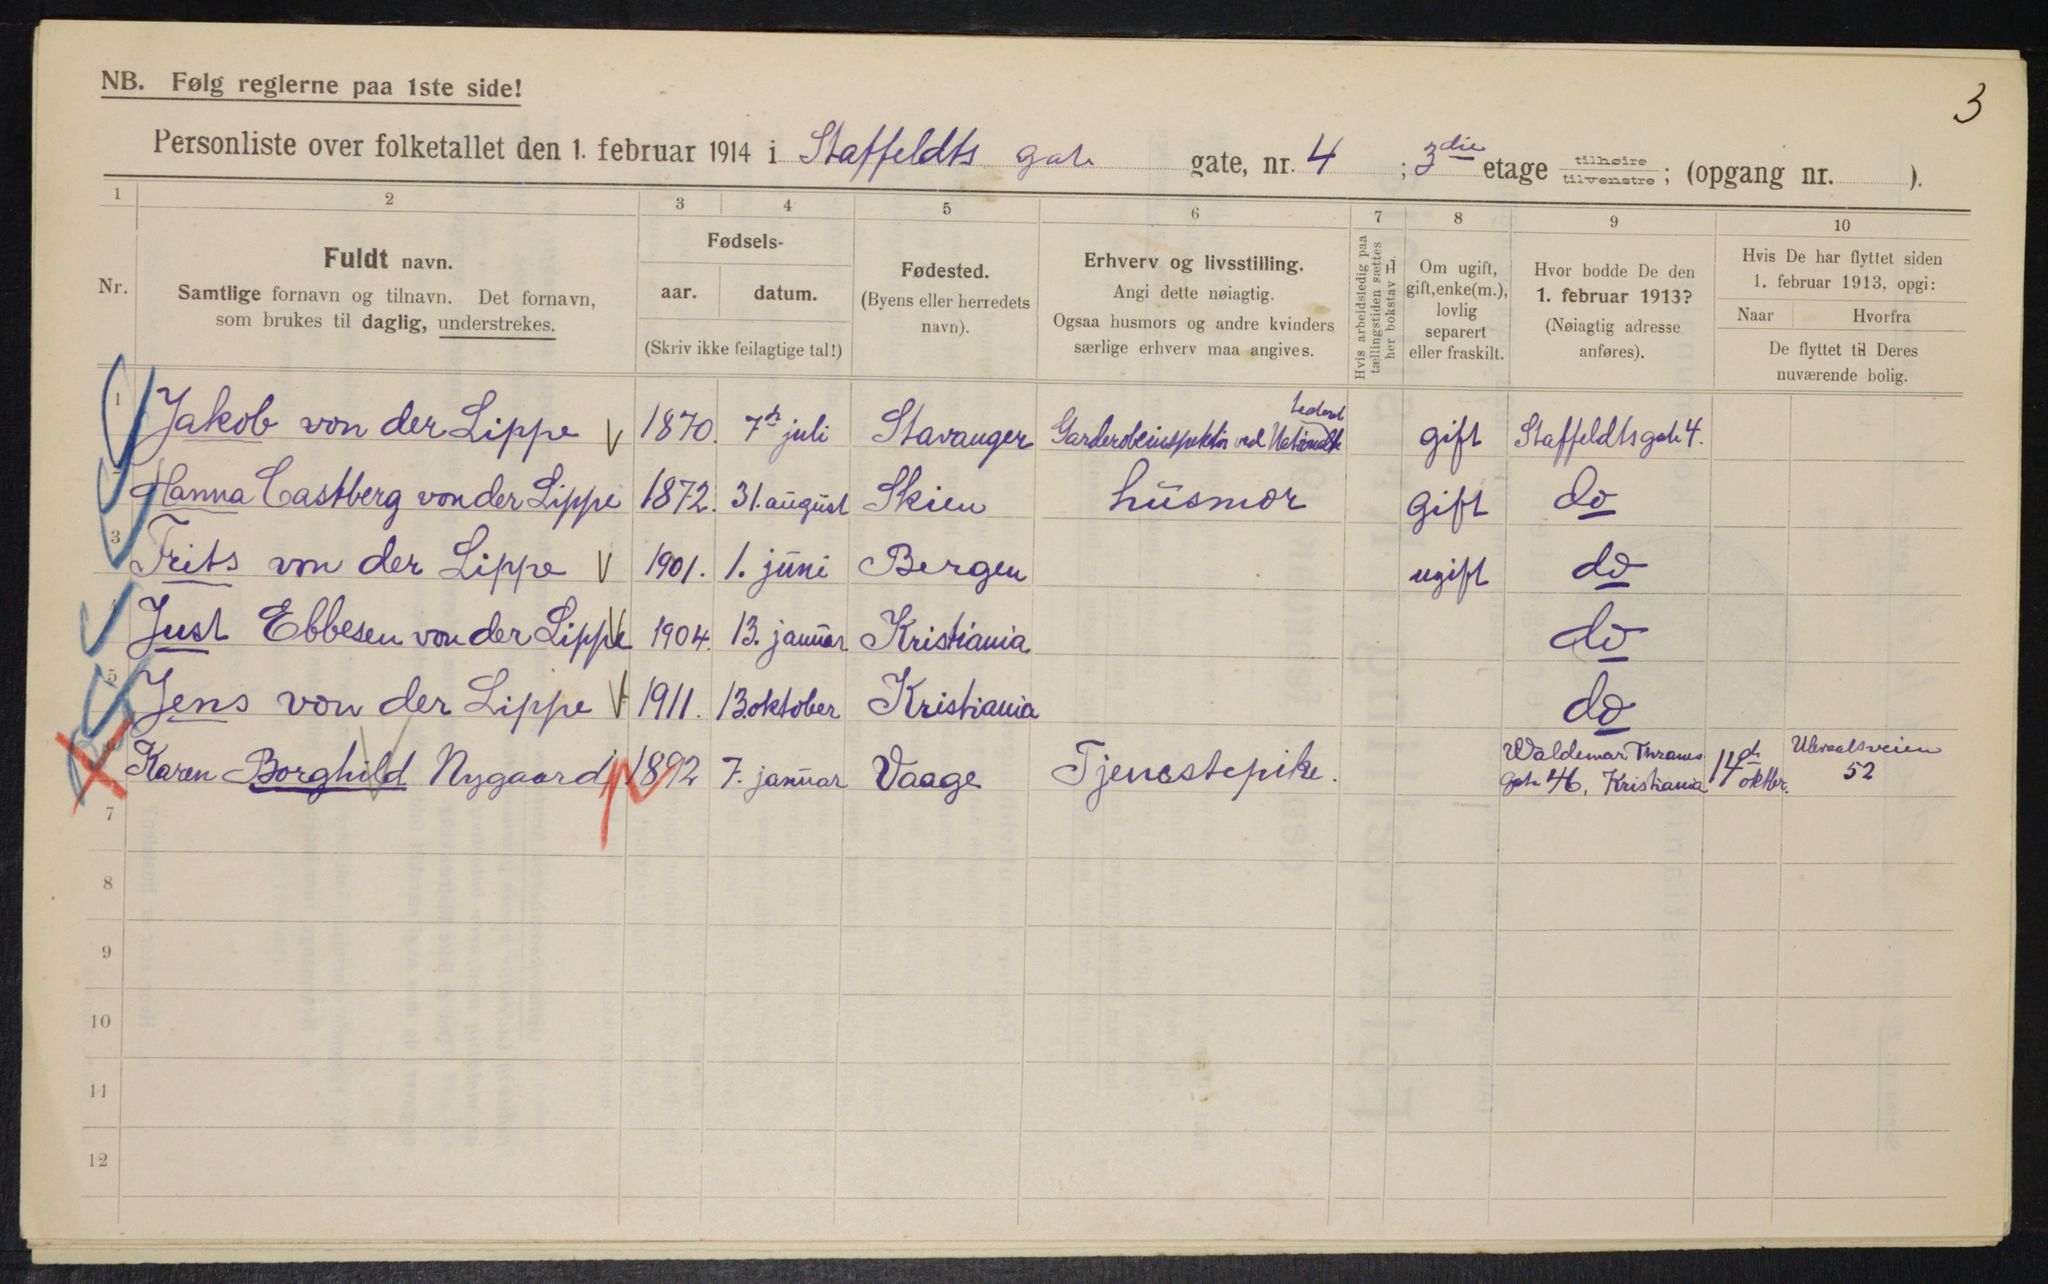 3
NB. Følg reglerne paa 1ste side!
Personliste over folketallet den 1. februar 1914 i Staffeldts gate gate, nr. 4 ; 3die etage tilhøire tilvenstre ; (opgang nr. ).
1 2 3 4 5 6 7 8 9 10
Nr.
Fuldt navn.
Samtlige fornavn og tilnavn. Det fornavn,
som brukes til daglig, understrekes.
Fødsels-
aar. datum.
(Skriv ikke feilagtige tal!)
Fødested.
(Byens eller herredets
navn).
Erhverv og livsstilling.
Angi dette nøiagtig.
Ogsaa husmors og andre kvinders
særlige erhverv maa angives.
Hvis arbeidsledig paa
tællingstiden sættes
her bokstav
Om ugift,
gift, enke(m.),
lovlig
separert
eller fraskilt.
Hvor bodde De den
1. februar 1913?
(Nøiagtig adresse
anføres).
Hvis De har flyttet siden
1. februar 1913, opgi:
Naar Hvorfra
De flyttet til Deres
nuværende bolig.
1 Jakob von der Lippe 1870. 7de juli Stavanger Garderobeinspektør ved gift Staffeldts gate 4.
2 Hanna Castberg von der Lippe 1872. 31. august Skien husmor gift do
3 Frits von der Lippe 1901. 1. juni Bergen ugift do
4 Just Ebbesen von der Lippe 1904. 13. januar Kristiania do
5 Jens von der Lippe 1911. 13 oktober Kristiania do
6 Karen Borghild Nygaard 1892 7. januar Vaage Tjenestepike. Waldemar Thranes gate 46, Kristiania 14de oktbr. Ulevaalsveien 52
7
8
9
10
11
12